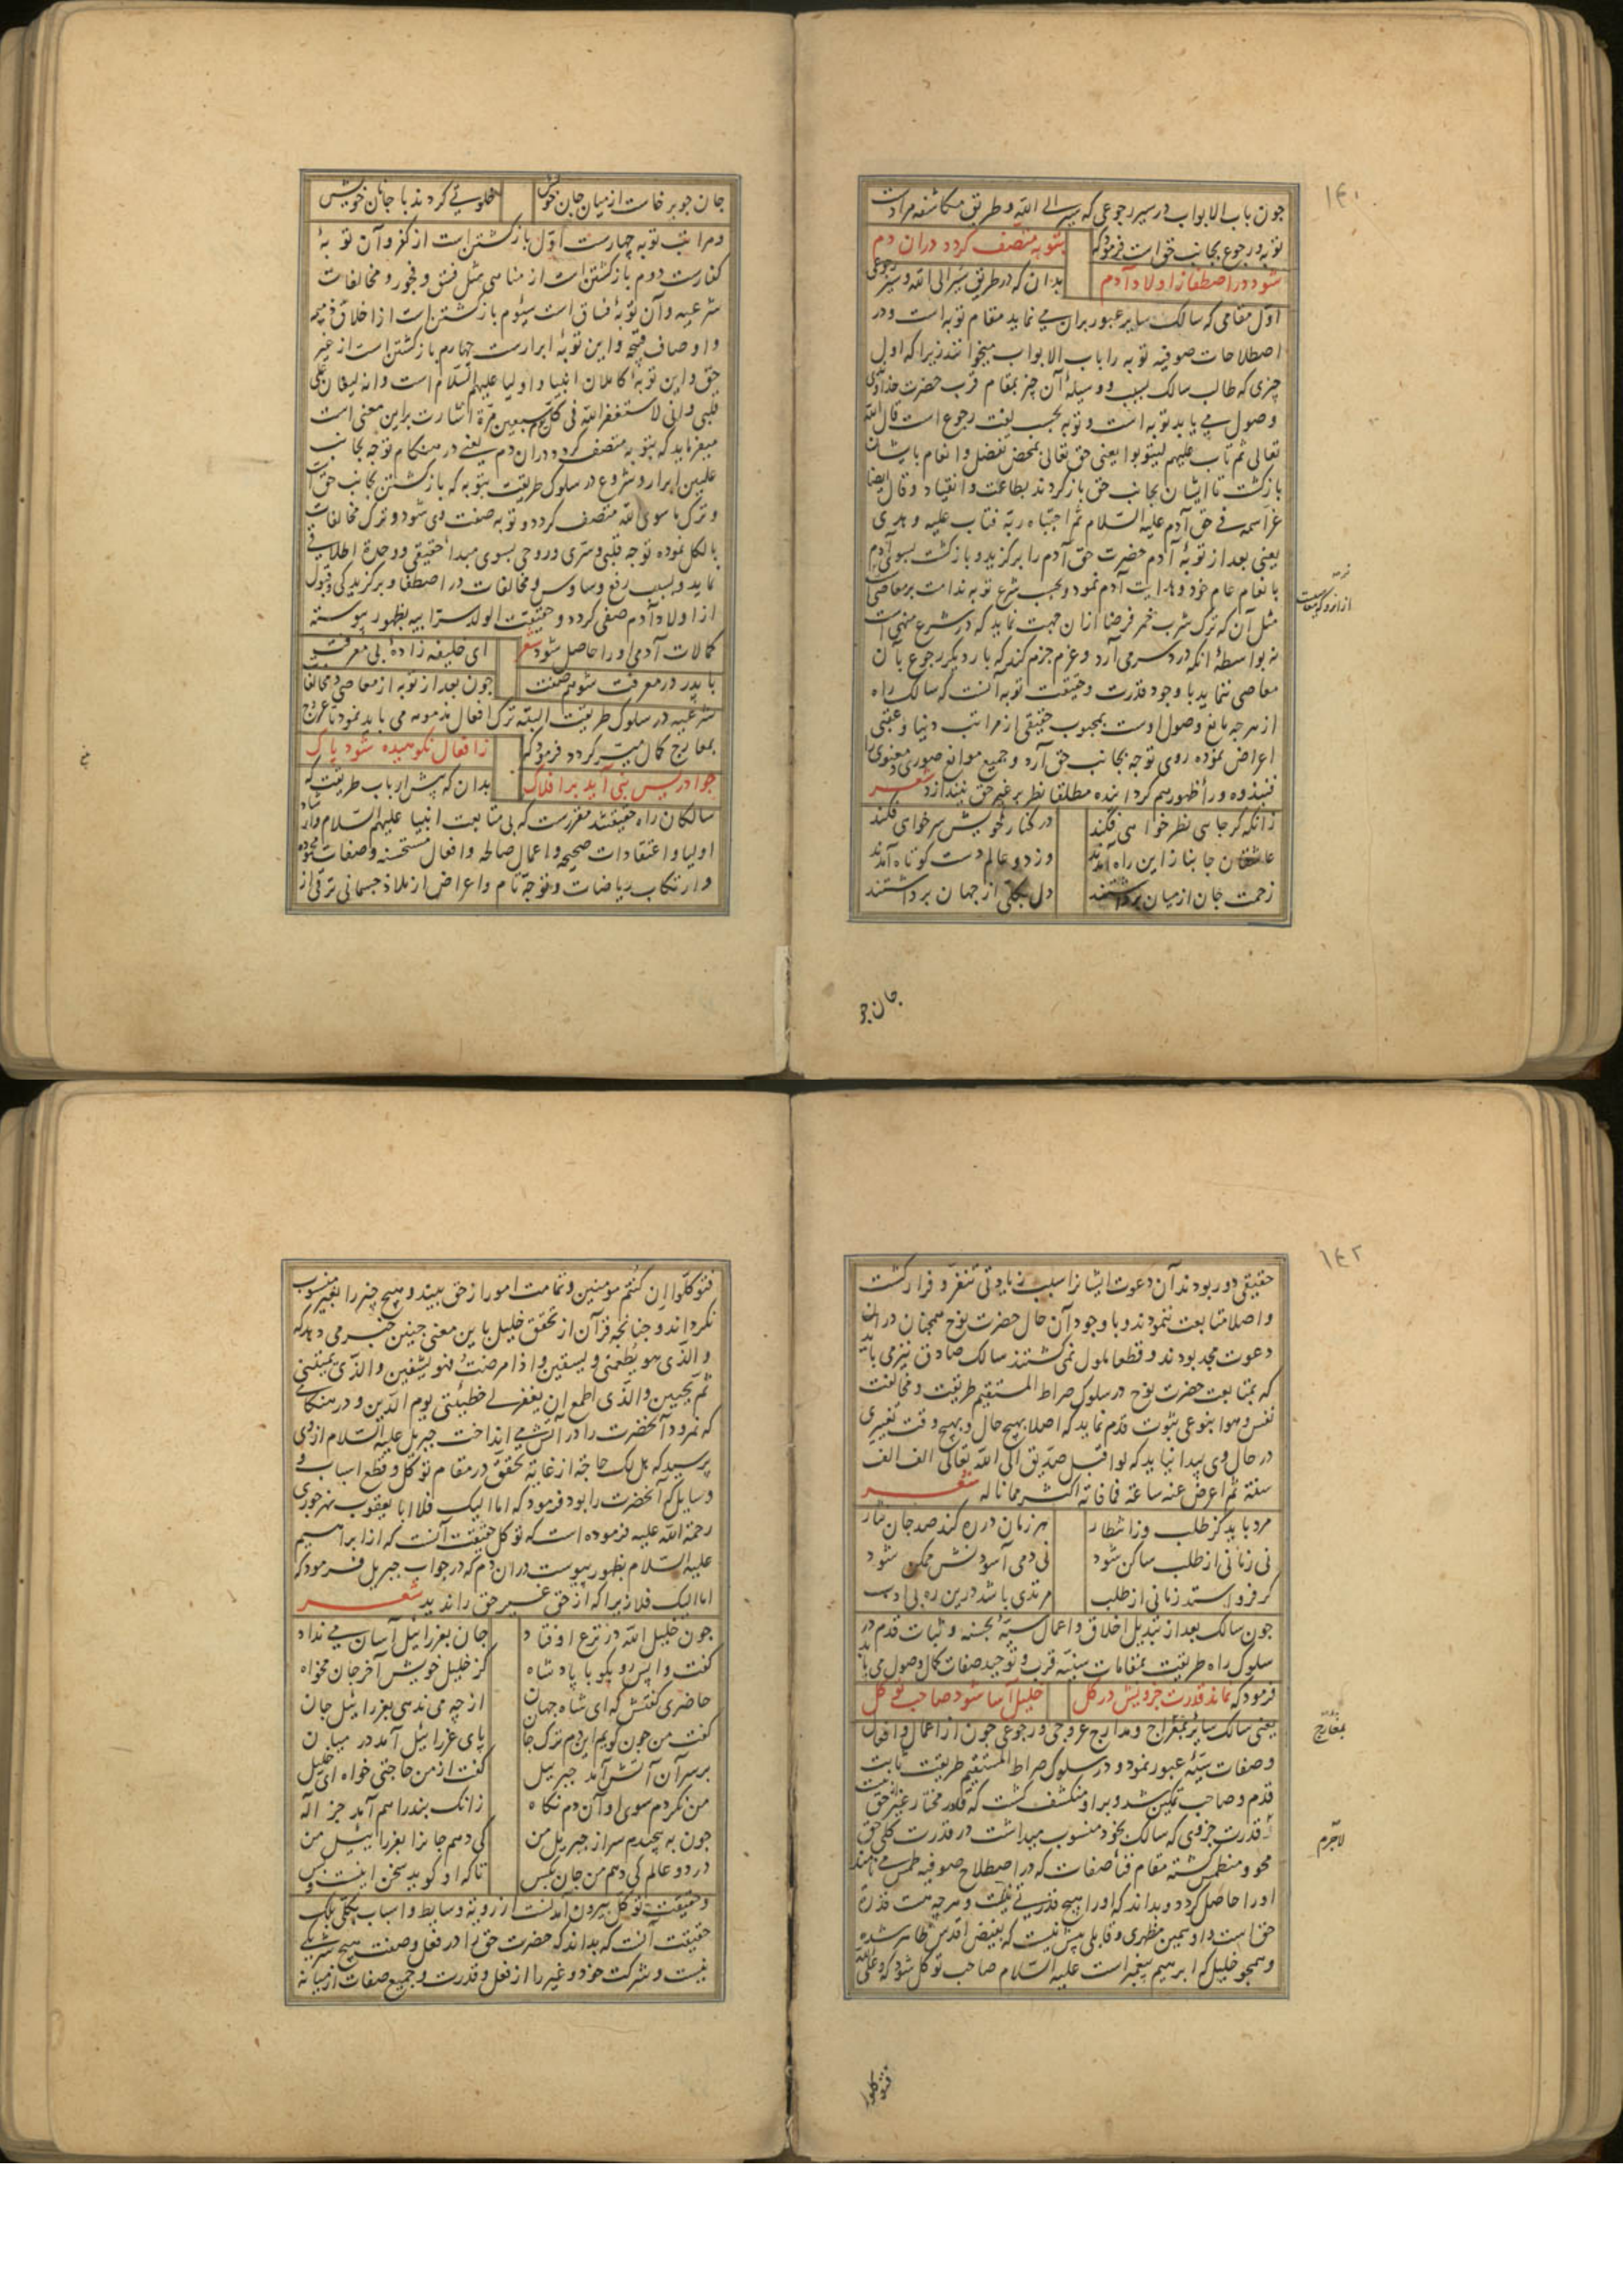 ۱۴۰
چون باب الابواب در سیر رجوعی که سیر الی الله و طریق مکاشفه مرادست
توبه و رجوع بجانب حق است فرمود که بتوبه متصف گردد دران دم
شود در اصطفا ز اولاد آدم بدان که در طریق سیر الی الله و سیر رجوعی
اول مقامی که سالک سایر عبور بران می نماید مقام توبه است و در
اصطلاحات صوفیه توبه را باب الابواب میخوانند زیرا که اول
چیزی که طالب سالک بسبب و وسیلهٔ آن چیز بمقام قرب حضرت خداوندی
وصول می یابد توبه است و توبه بحسب لغت رجوع است قال الله
تعالی ثم تاب علیهم لیتوبوا یعنی حق تعالی بمحض تفضل و انعام بایشان
بازگشت تا ایشان بجانب حق بازگردند بطاعت و انقیاد و قال ایضا
عز اسمه فی حق آدم علیه السلام ثم اجتباه ربه فتاب علیه و هدی
یعنی بعد از توبهٔ آدم حضرت حق آدم را برگزید و بازگشت بسوی آدم
بانعام عام خود و هدایت آدم نمود و بحسب شرع توبه ندامت بر معاصی است
از آن رو که معاصیست
مثل آن که ترک شرب خمر فرضا ازان جهت نماید که در شرع منهی است
نه بواسطهٔ آنکه درد سر می آرد و عزم جزم کند که بار دیگر رجوع بآن
معاصی ننماید با وجود قدرت و حقیقت توبه آنست که سالک راه
از هرچه مانع وصول اوست بمحبوب حقیقی از مراتب دنیا و عقبی
اعراض نموده روی توجه بجانب حق آرد و جمیع موانع صوری و معنوی را
فنبذوه وراء ظهورهم گردانیده مطلقا نظر بر غیر حق نیندازد شعر
زانکه گر جایی نظر خواهی فکند در کنار خویش سر خواهی فکند
عاشقان جانباز این راه آمدند وز دو عالم دست کوتاه آمدند
زحمت جان از میان برداشتند دل بکلی از جهان برداشتند
جان چو
جان چو برخاست از میان جان خویش خلوتی کردند با جانان خویش
و مراتب توبه چهارست اول بازگشتن است از کفر و آن توبهٔ
کفارست دوم بازگشتن است از مناهی مثل فسق و فجور و مخالفات
شرعیه و آن توبهٔ فساق است سیوم بازگشتن است از اخلاق ذمیمه
و اوصاف قبیحه و این توبهٔ ابرارست چهارم بازگشتن است از غیر
حق و این توبهٔ کاملان انبیا و اولیا علیهم السلام است و انه لیغان علی
قلبی و انی لاستغفر الله فی کل یوم سبعین مرة اشارت براین معنی است
میفرماید که بتوبه متصف گردد دران دم یعنی در هنگام توجه بجانب
علیین ابرار و شروع در سلوک طریقت بتوبه که بازگشتن بجانب حق است
و ترک ما سوی الله متصف گردد و توبه صفت وی شود و ترک مخالفات
بالکل نموده توجه قلبی و سری و روحی بسوی مبدأ حقیقی و وحدة اطلاقی
نماید و بسبب رفع وساوس و مخالفات در اصطفا و برگزیدگی و قبول
از اولاد آدم صفی گردد و حقیقت الولد سر ابیه بظهور پیوسته
کمالات آدمی او را حاصل شود شعر ای خلیفه زادهٔ بی معرفت
با پدر در معرفت شو هم صفت چون بعد از توبه از معاصی و مخالفات
شرعیه در سلوک طریقت البته ترک افعال مذمومه می باید نمود تا عروج
بمعارج کمال میسر گردد فرمود که ز افعال نکوهیده شود پاک
چو ادریس نبی آید بر افلاک بدان که پیش ارباب طریقت که
سالکان راه حقیقتند مقررست که بی متابعت انبیا علیهم السلام و ارشاد
اولیا و اعتقادات صحیحه و اعمال صالحه و افعال مستحسنه و صفات محموده
و ارتکاب ریاضات و توجه تام و اعراض از ملاذ جسمانی ترقی از
۱۴۲
حقیقی دور بودند آن دعوت ایشان را سبب زیادتی تنفر و فرار گشت
و اصلا متابعت ننمودند و با وجود آن حال حضرت نوح همچنان در آن
دعوت مجد بودند و قطعا ملول نمی گشتند سالک صادق نیز می باید
که بمتابعت حضرت نوح در سلوک صراط المستقیم طریقت و مخالفت
نفس و هوا بنوعی بثبوت قدم نماید که اصلا بهیچ حال و بهیچ وقت تغییری
در حال وی پیدا نیاید که لو اقبل صدیق الی الله تعالی الف الف
سنة ثم اعرض عنه ساعة فما فاته اکثر مما ناله شعر
مرد باید کز طلب وز انتظار هر زمان در ره کند صد جان نثار
نی زمانی از طلب ساکن شود نی دمی آسودنش ممکن شود
گر فرو استد زمانی از طلب مرتدی باشد درین ره بی ادب
چون سالک بعد از تبدیل اخلاق و اعمال سیئه بحسنه و ثبات قدم در
سلوک راه طریقت بمقامات سنیه قرب و توحید صفات کمال وصول می یابد
فرمود که نماند قدرت جزویش در کل خلیل آسا شود صاحب توکل
یعنی سالک سایر بمعراج و مدارج عروجی و رجوعی چون از اعمال و افعال
بمعارج
و صفات سیئه عبور نمود و در سلوک صراط المستقیم طریقت ثابت
قدم و صاحب تمکین شد و برو منکشف گشت که قادر مختار غیر حق نیست
لاجرم
قدرت جزوی که سالک بخود منسوب میداشت در قدرت کلی حق
محو و منطمس گشته مقام فنأ صفات که در اصطلاح صوفیه طمس می نامند
او را حاصل گردد و بداند که او را هیچ قدرتی نیست و هرچه هست قدرة
حق است و او همین مظهری و قابلی بیش نیست که بفیض اقدس ظاهر شده
و همچو خلیل که ابرهیم پیغمبر است علیه السلام صاحب توکل شود که و علی الله
فتوکلوا
فتوکلوا ان کنتم مؤمنین و تمامت امور از حق بیند و هیچ چیز را بغیر منسوب
نگرداند و چنانچه قرآن از تحقق خلیل باین معنی چنین خبر می دهد که
و الذی هو یطعمنی و یسقین و اذا مرضت فهو یشفین و الذی یمیتنی
ثم یحیین و الذی اطمع ان یغفر لی خطیئتی یوم الدین و در هنگامی
که نمرود آنحضرت را در آتش می انداخت جبریل علیه السلام از وی
پرسید که هل لک حاجة از غایة تحقق در مقام توکل و قطع اسباب و
وسایل که آنحضرت را بود فرمود که اما الیک فلا ابا یعقوب نهرجوری
رحمة الله علیه فرموده است که توکل حقیقت آنست که از ابراهیم
علیه السلام بظهور پیوست دران دم که در جواب جبریل فرمود که
اما الیک فلا زیرا که از حق غیر حق را ندید شعر
چون خلیل الله در نزع اوفتاد جان بعزرائیل آسان می نداد
گفت واپس رو بگو با پادشاه کز خلیل خویش آخر جان مخواه
حاضری گفتش که ای شاه جهان از چه می ندهی بعزرائیل جان
گفت من چون گویم این دم ترک جان پای عزرائیل آمد در میان
بر سر آن آتش آمد جبرئیل گفت از من حاجتی خواه ای خلیل
من نکردم سوی او آن دم نگاه زانک بند راهم آمد جز اله
چون به پیچیدم سر از جبریل من کی دهم جان را بعزرائیل من
در دو عالم کی دهم من جان بکس تا که او گوید سخن اینست و بس
و حقیقت توکل بیرون آمدنست از رویة وسایط و اسباب بکلی بلک
حقیقت آنست که بداند که حضرت حق را در فعل و صفت هیچ شریکی
نیست و شرکت خود و غیر را از فعل و قدرت و جمیع صفات از میانه